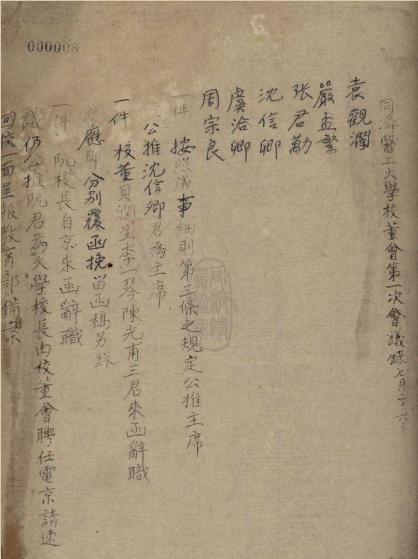 000008
同濟醫工大學校董會第一次會議錄 七月二六日
袁觀瀾
嚴孟繁
張君勱
沈信卿
虞洽卿
周宗良
一件 按照議事細則第三條之規定公推主席
公推沈信卿君為主席
一件 校董貝潤生李一琴陳光甫三君來函辭職
應 分別覆函挽留函稿另錄
一件 阮校長自京來函辭職
議仍公推阮君為大學校長由校董會聘任電京請速
回校一面呈報教育部備案